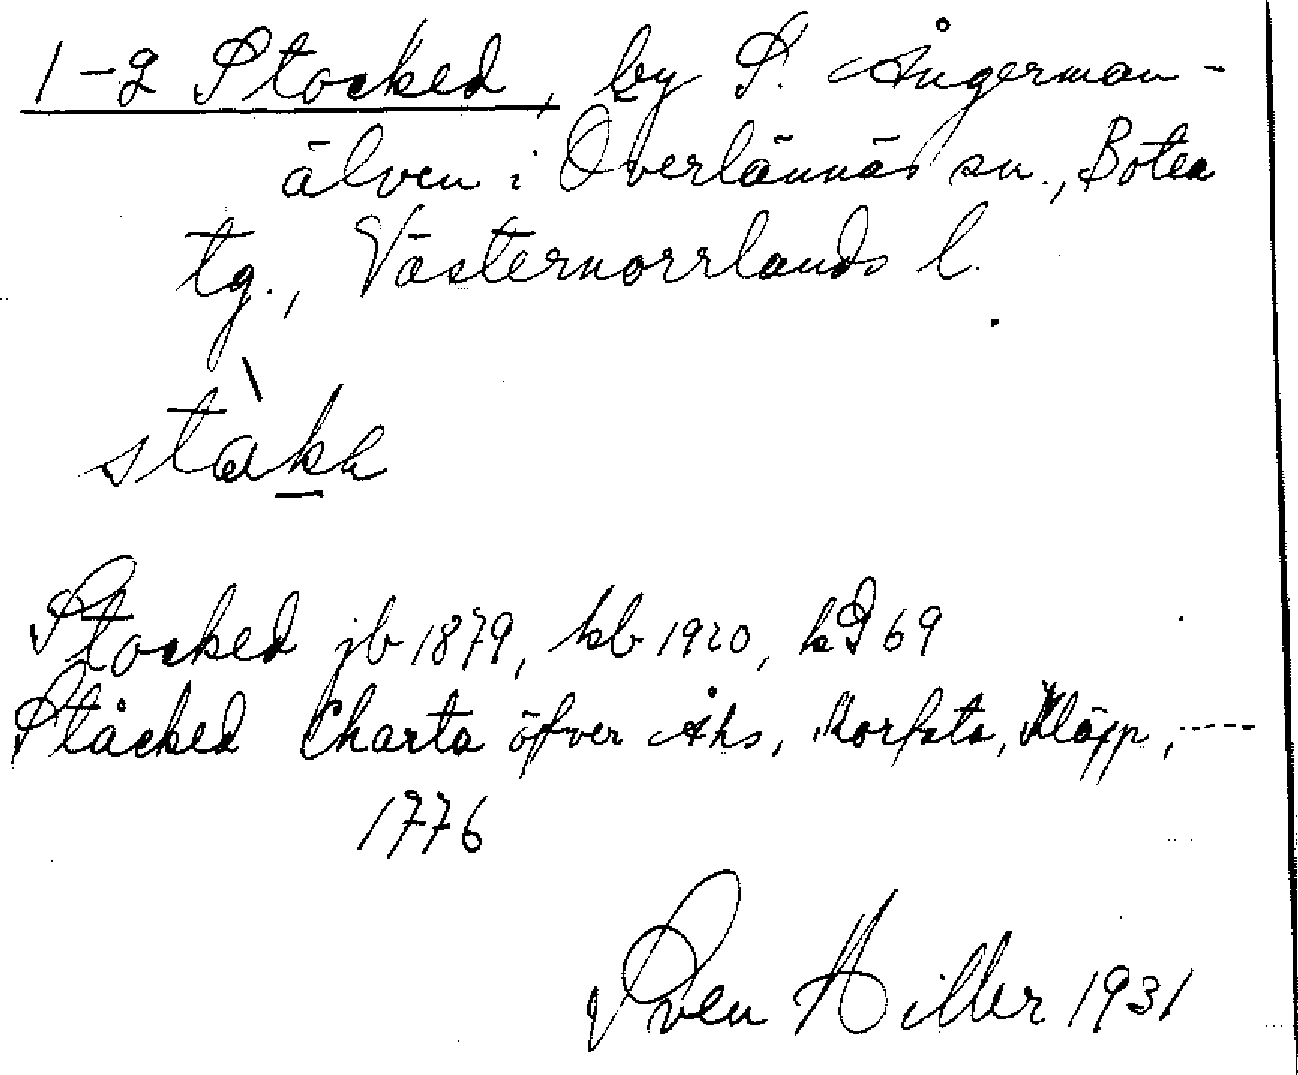 1-2 Stocked, by S. Ångerman-
älven i Överlännäs sn., Boteå
tg., Västernorrlands l.
stàkа
Stocked jb 1879, kb 1920, kD 69
Ståcked Charta öfver Åhs, Korfsta, Kläpp, ----
1776
Sven Hiller 1931